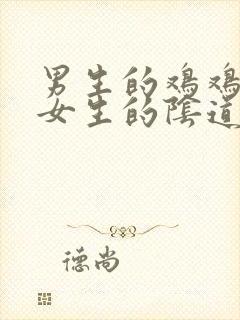 男生的鸡鸡
女生的陰道
德尚